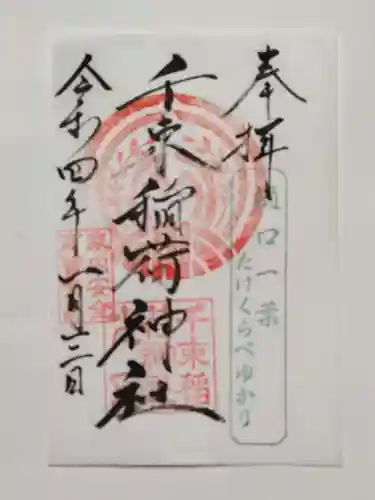 奉拝
樋口一葉
たけくらべゆかり
千束稲荷神社
令和四年八月十二日
千束稲